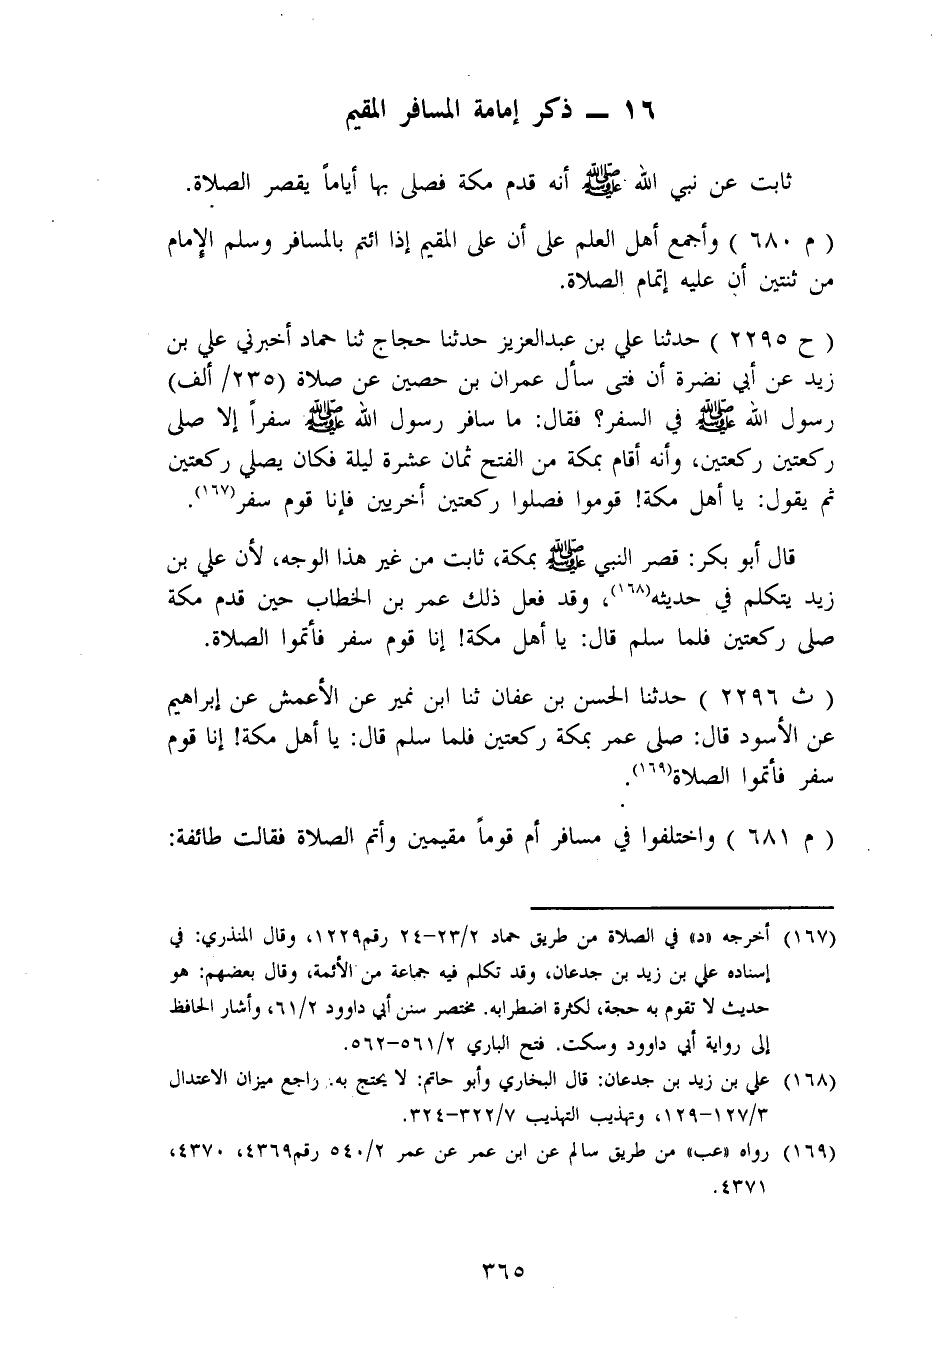 ١٦ ـــ ذكر إمامة المسافر المقيم
ثابت عن نبي الله ﷺ أنه قدم مكة فصلى بها أياماً يقصر الصلاة.
( م ٦٨٠ ) وأجمع أهل العلم على أن على المقيم إذا ائتم بالمسافر وسلم الإمام
من ثنتين أن عليه إتمام الصلاة.
( ح ٢٢٩٥ ) حدثنا علي بن عبدالعزيز حدثنا حجاج ثنا حماد أخبرني علي بن
زيد عن أبي نضرة أن فتى سأل عمران بن حصين عن صلاة (٢٣٥/ ألف)
رسول الله ﷺ في السفر؟ فقال: ما سافر رسول الله ﷺ سفراً إلا صلى
ركعتين ركعتين، وأنه أقام بمكة من الفتح ثمان عشرة ليلة فكان يصلي ركعتين
ثم يقول: يا أهل مكة! قوموا فصلوا ركعتين أخريين فإنا قوم سفر(١٦٧).
قال أبو بكر: قصر النبي ﷺ بمكة، ثابت من غير هذا الوجه، لأن علي بن
زيد يتكلم في حديثه(١٦٨)، وقد فعل ذلك عمر بن الخطاب حين قدم مكة
صلى ركعتين فلما سلم قال: يا أهل مكة! إنا قوم سفر فأتموا الصلاة.
( ث ٢٢٩٦ ) حدثنا الحسن بن عفان ثنا ابن نمير عن الأعمش عن إبراهيم
عن الأسود قال: صلى عمر بمكة ركعتين فلما سلم قال: يا أهل مكة! إنا قوم
سفر فأتموا الصلاة(١٦٩).
( م ٦٨١ ) واختلفوا في مسافر أم قوماً مقيمين وأتم الصلاة فقالت طائفة:
(١٦٧) أخرجه «د» في الصلاة من طريق حماد ٢٣/٢–٢٤ رقم١٢٢٩، وقال المنذري: في
إسناده علي بن زيد بن جدعان، وقد تكلم فيه جماعة من الأئمة، وقال بعضهم: هو
حديث لا تقوم به حجة، لكثرة اضطرابه. مختصر سنن أبي داوود ٦١/٢، وأشار الحافظ
إلى رواية أبي داوود وسكت. فتح الباري ٥٦١/٢–٥٦٢.
(١٦٨) علي بن زيد بن جدعان: قال البخاري وأبو حاتم: لا يحتج به. راجع ميزان الاعتدال
١٢٧/٣–١٢٩، وتهذيب التهذيب ٣٢٢/٧–٣٢٤.
(١٦٩) رواه «عب» من طريق سالم عن ابن عمر عن عمر ٥٤٠/٢ رقم٤٣٦٩، ٤٣٧٠،
٤٣٧١.
٣٦٥